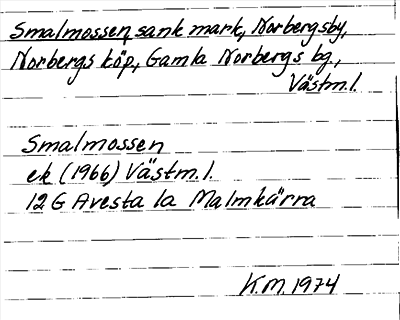 Smalmossen, sank mark, Norbergsby,
Norbergs köp., Gamla Norbergs bg.,
Västm.l.
Smalmossen
ek (1966) Västm.l.
12 G Avesta 1a Malmkärra
K.M. 1974